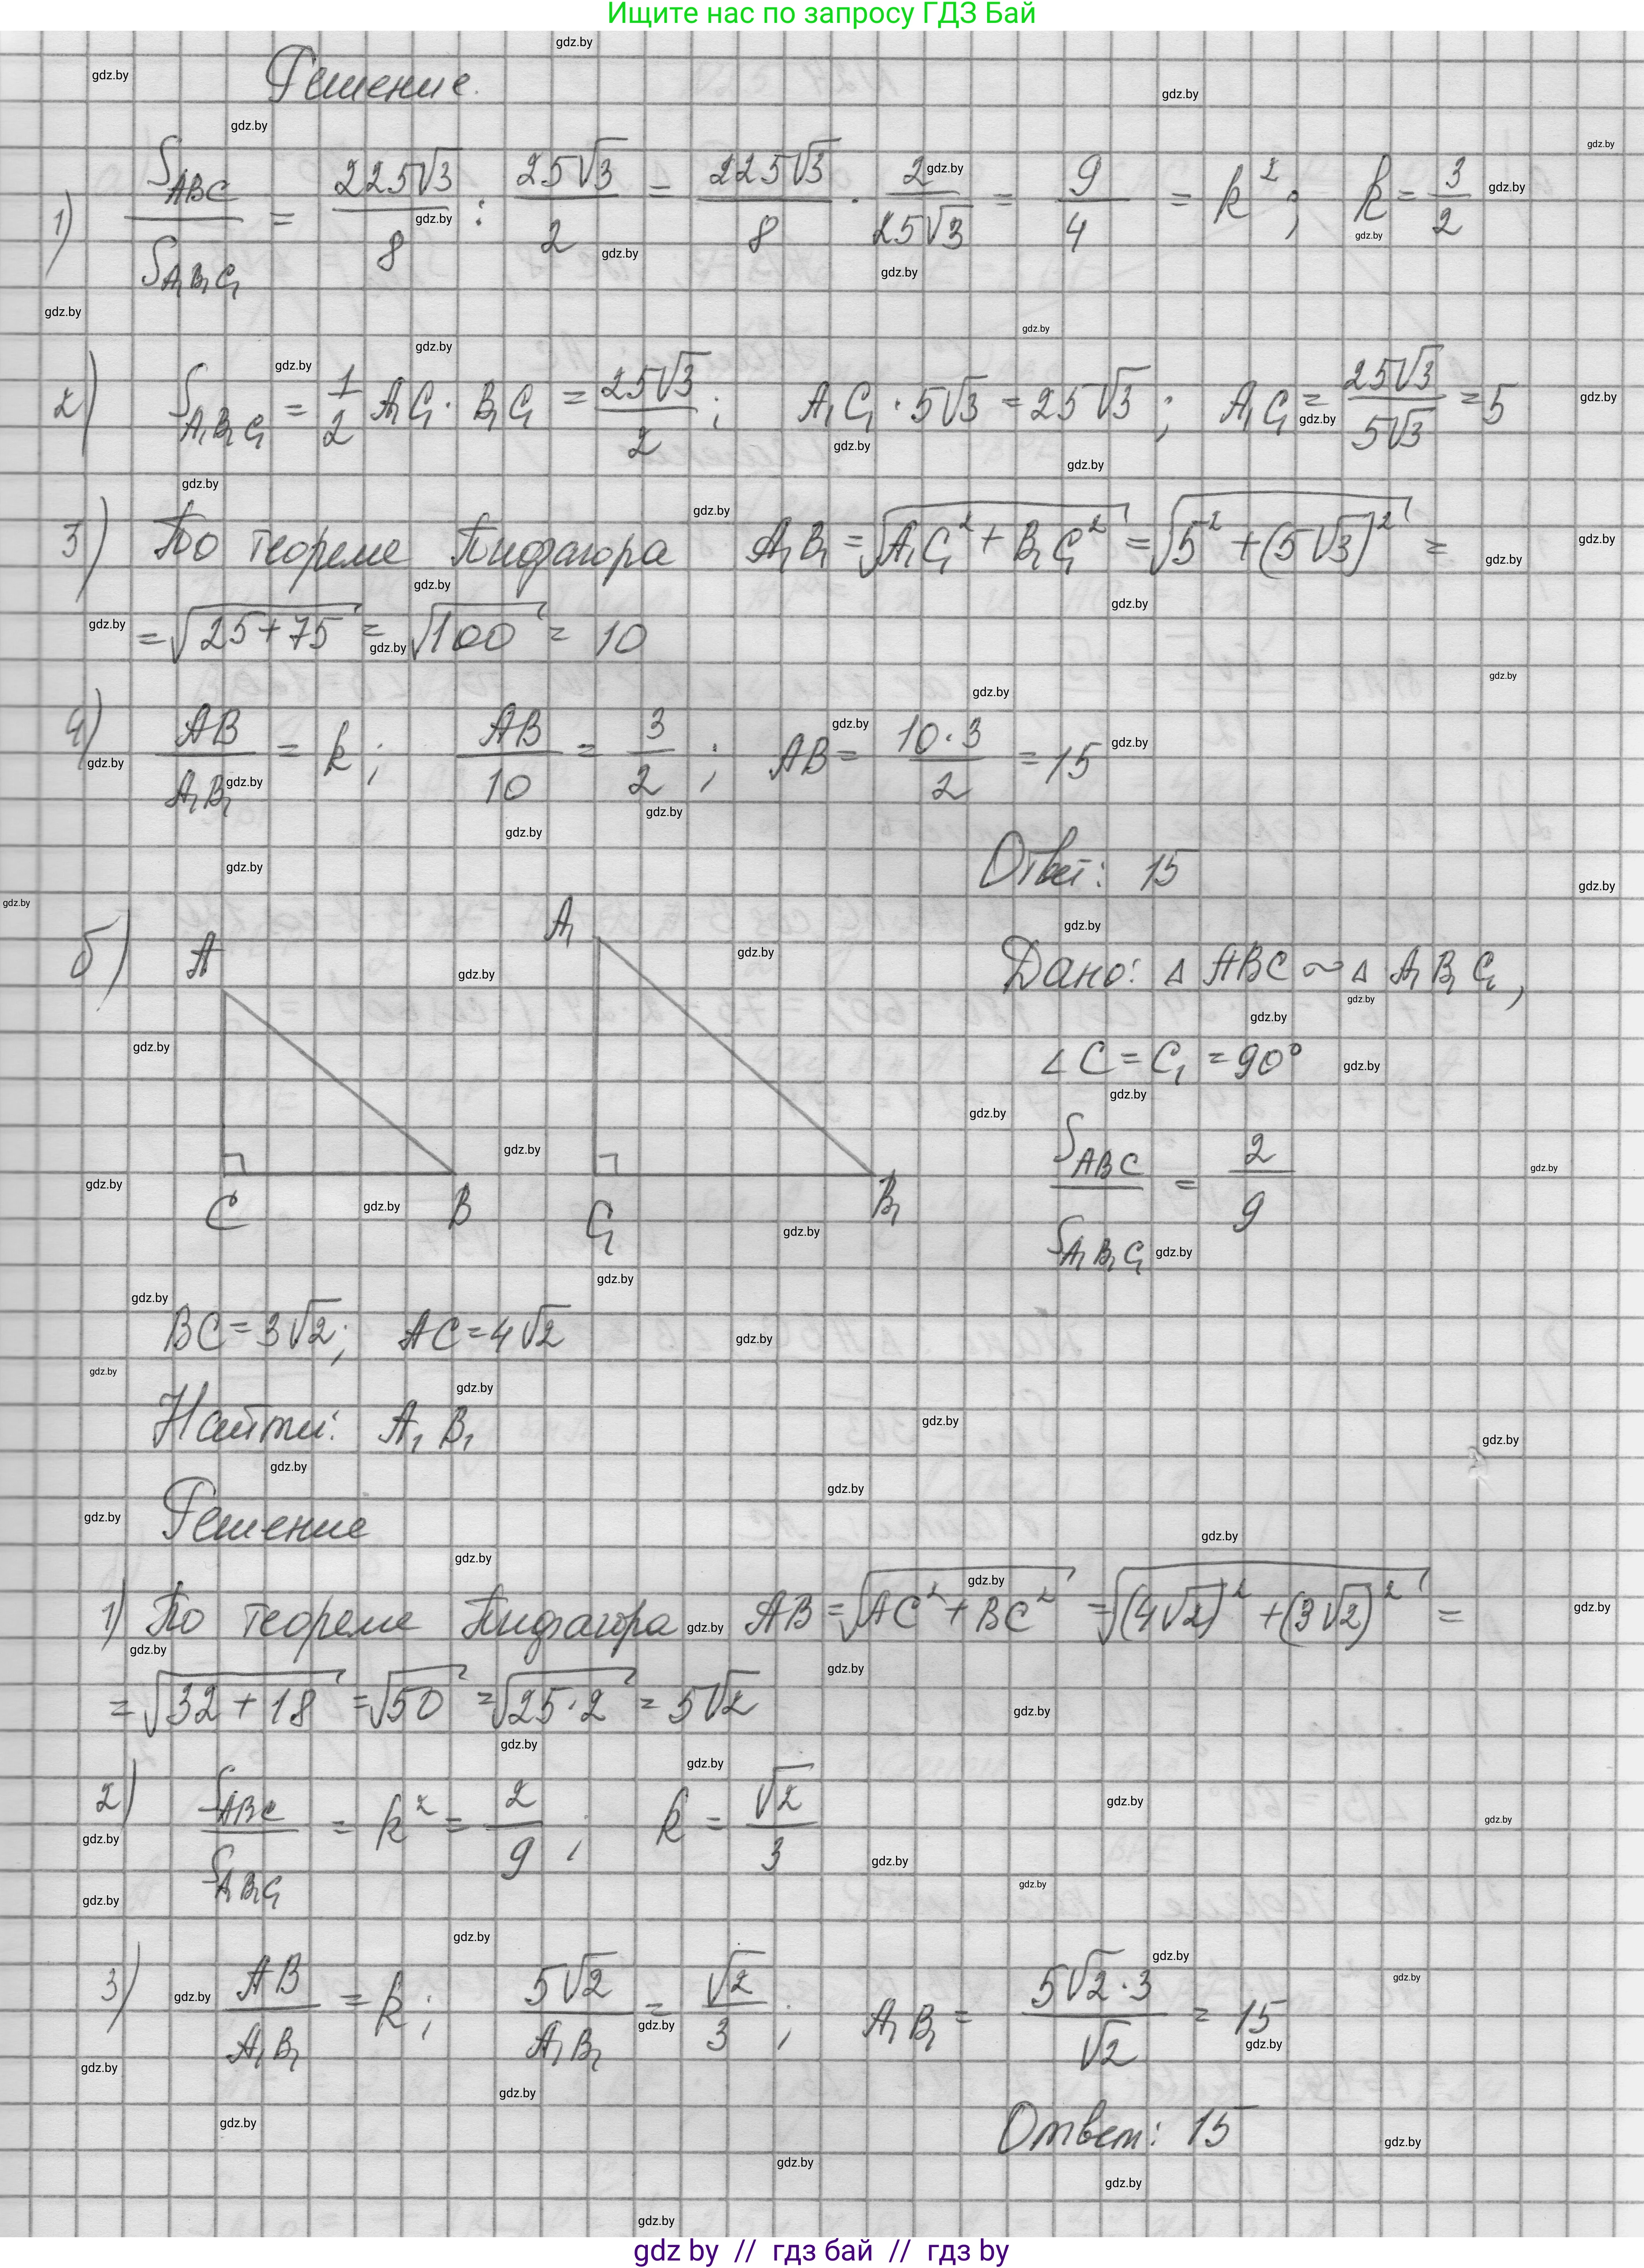 Ищите нас по запросу ГДЗ Бай
Решение.
1) S_ABC / S_A₁B₁C₁ = 225√3 / 8 : 25√3 / 2 = 225√3 / 8 · 2 / 25√3 = 9 / 4 = k²; k = 3 / 2
2) S_A₁B₁C₁ = 1/2 A₁C₁ · B₁C₁ = 25√3 / 2; A₁C₁ · 5√3 = 25√3; A₁C₁ = 25√3 / 5√3 = 5
3) По теореме Пифагора A₁B₁ = √(A₁C₁² + B₁C₁²) = √(5² + (5√3)²) =
= √(25+75) = √100 = 10
4) AB / A₁B₁ = k; AB / 10 = 3 / 2; AB = 10·3 / 2 = 15
Ответ: 15
б) A A₁ Дано: △ ABC ~ △ A₁B₁C₁,
∠C = C₁ = 90°
S_ABC / S_A₁B₁C₁ = 2 / 9
C B C₁ B₁
BC = 3√2; AC = 4√2
Найти: A₁B₁
Решение
1) По теореме Пифагора AB = √(AC² + BC²) = √((4√2)² + (3√2)²) =
= √(32 + 18) = √50 = √(25·2) = 5√2
2) S_ABC / S_A₁B₁C₁ = k² = 2 / 9; k = √2 / 3
3) AB / A₁B₁ = k; 5√2 / A₁B₁ = √2 / 3; A₁B₁ = 5√2·3 / √2 = 15
Ответ: 15
gdz.by
gdz by // гдз бай // гдз by